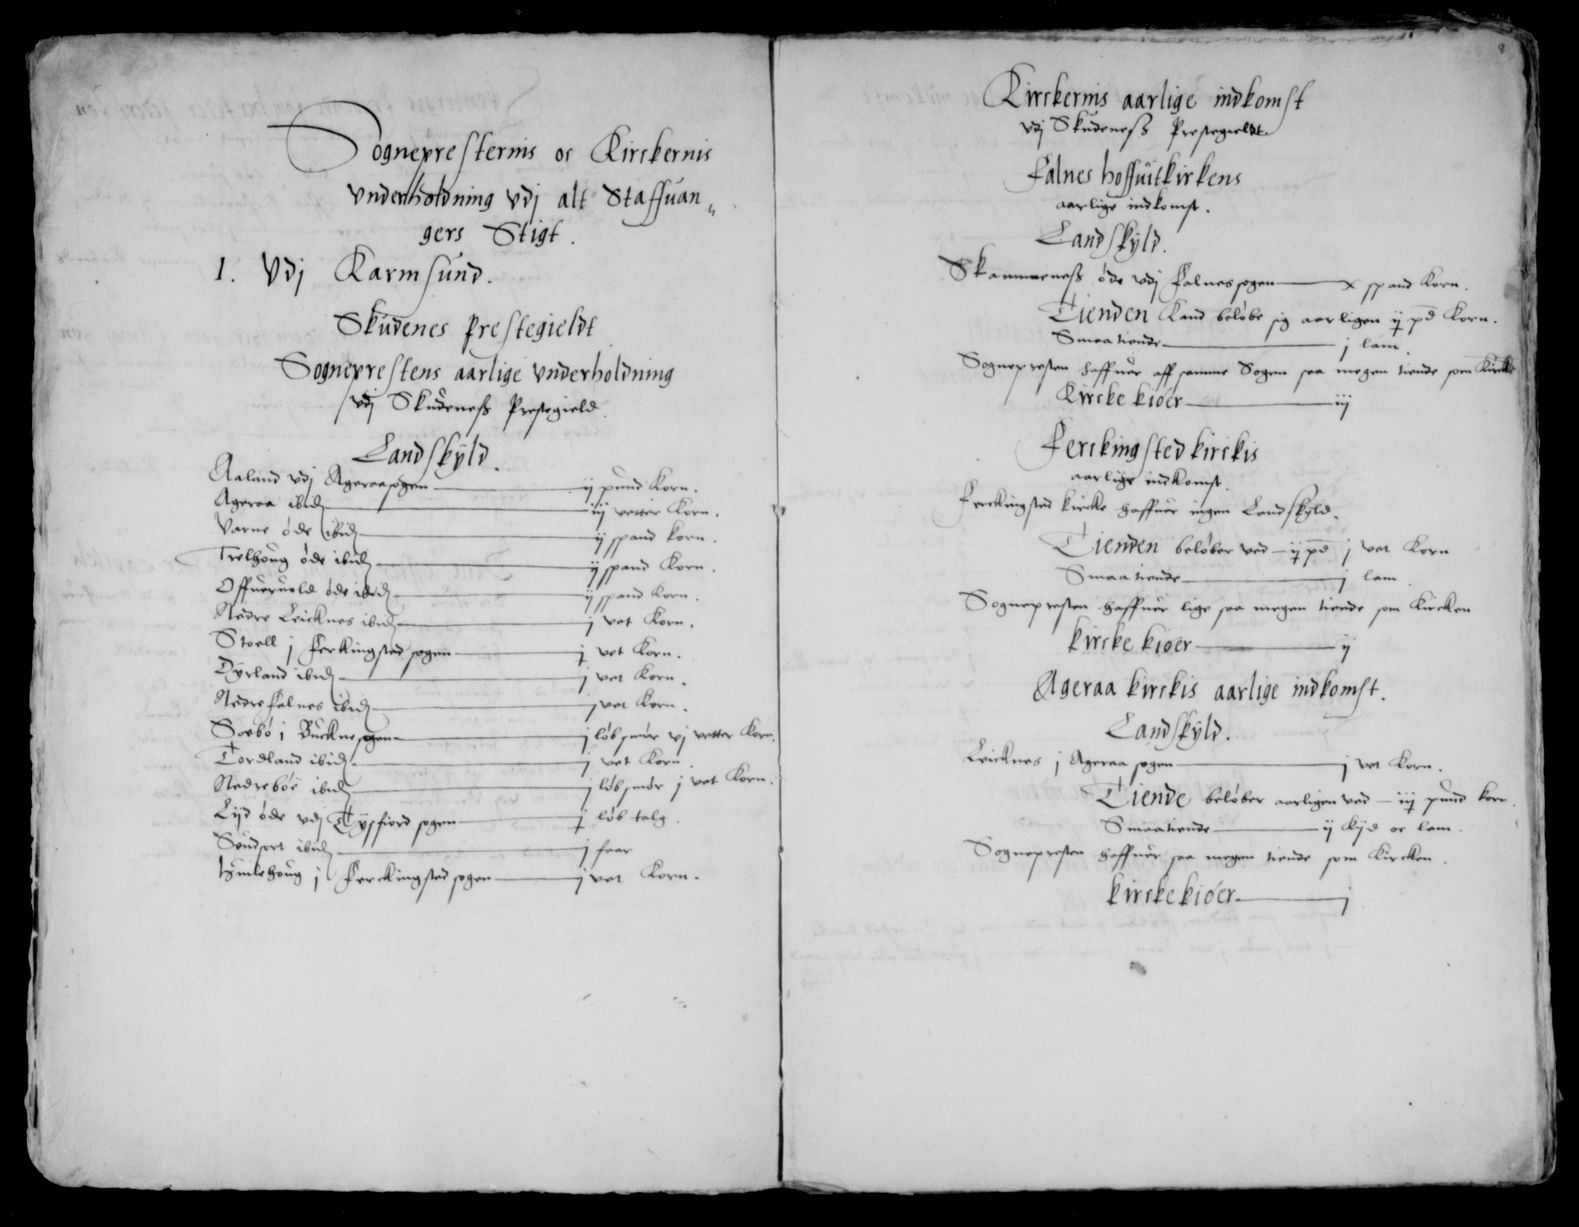 Sognepresternis oc Kirckernis
vnderholdning vdj alt Staffuan„
gers Stigt.
1. Vdj Karmsund.
Skudenes prestegieldt
Sogneprestens aarlige vnderholdning
vdj Skudeness Prestegield.
Landskyld.
Aaland vdj Ageraasogen — ij pund Korn.
Ageraa ibid — iij vetter Korn.
Varne øde ibid — ij spand korn.
Trelhoug øde ibid — ij spand Korn.
Offueruold øde ibid — ij spand Korn.
Nedre Leicknes ibid — j vet Korn.
Stoell j Ferckingsted sogen — j vet Korn.
Dyrland ibid — j vet Korn.
Nedre Falnes ibid — j vet Korn.
Soebø j Bucknesogen — j løb smør vj vetter Korn.
Tordland ibid — j vet Korn.
Nedrebøe ibid — j løb smør j vet Korn.
Lijd øde vdj Tysfiord sogen — j løb talg.
Sundfort ibid — j faar
j Ferckingsted sogen — j vet Korn.
8
Kirckernis aarlige indkomst
vdj Skudeness Prestegieldt.
Falnes hoffuitkirkens
aarlige indkomst.
Landskyld.
Skammeness øde vdj Falnessogen — x spand Korn.
Tienden Kand beløbe sig aarligen ij pd Korn.
Smaatiende — j lam.
Sognepresten haffuer aff samme Sogen saa megen tiende som Kircke
Kircke kiøer — iij
Ferckingsted kirckis
aarlige indkomst.
Ferckingsted kircke haffuer ingen Landskyld.
Tienden beløber ved — ij pd j vet Korn
Smaatiende — j lam
Sognepresten haffuer lige saa megen tiende som Kircken
kircke kiøer — ij
Ageraa kirckis aarlige indkomst.
Landskyld.
Leicknes j Ageraa sogen — j vet Korn.
Tiende beløber aarligen ved — iij pund korn.
Smaatiende — ij Kijd oc lam.
Sognepresten haffuer saa megen tiende som Kircken.
kircke kiøer — j